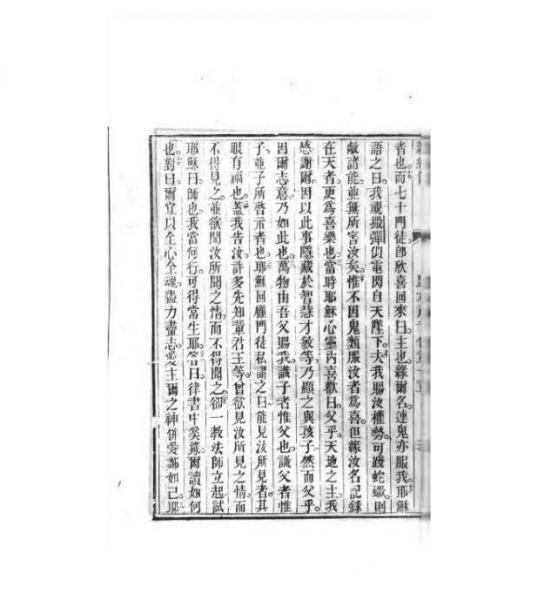 者也而七十門徒卽欣喜回來曰主也緣爾名連鬼亦服我耶穌
語之曰我視撒彈値電閃自天墜下夫我賜汝權勢可踐蛇蠍則
敵諸能並無所害汝矣惟不因鬼類服汝者爲喜但緣汝名記錄
在天者更爲喜樂也當時耶穌心靈內喜歡曰父乎天地之主我
感謝爾因以此事隱藏於智慧才敏等乃顯之與孩子然而父乎
因爾志意乃如此也萬物由吾父賜我識子者惟父也識父者惟
子並子所啓示者也耶穌回顧門徒私謂之曰能見汝所見者其
眼有福也蓋我告汝許多先知輩君王等曾欲見汝所見之情而
不得見之並欲聞汝所聞之情而不得聞之卻一教法師立起試
耶穌曰師也我當何行可得常生耶答曰律書中奚錄爾讀如何
也對曰爾宜以全心全魂盡力盡志愛主爾之神併愛鄰如己